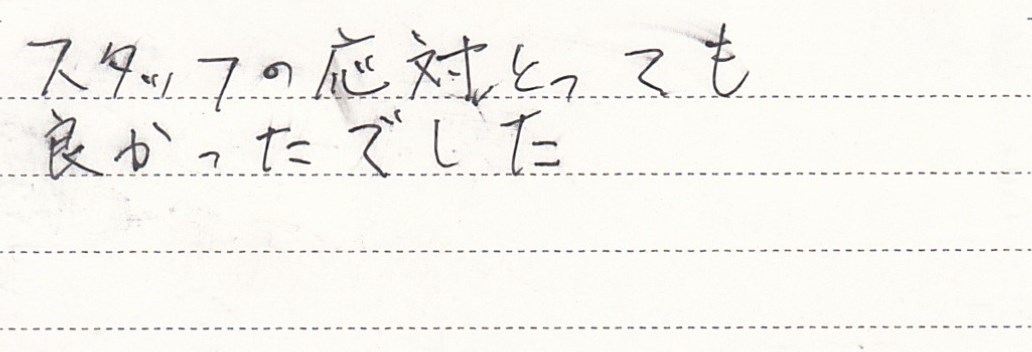 スタッフの応対とっても
良かったでした